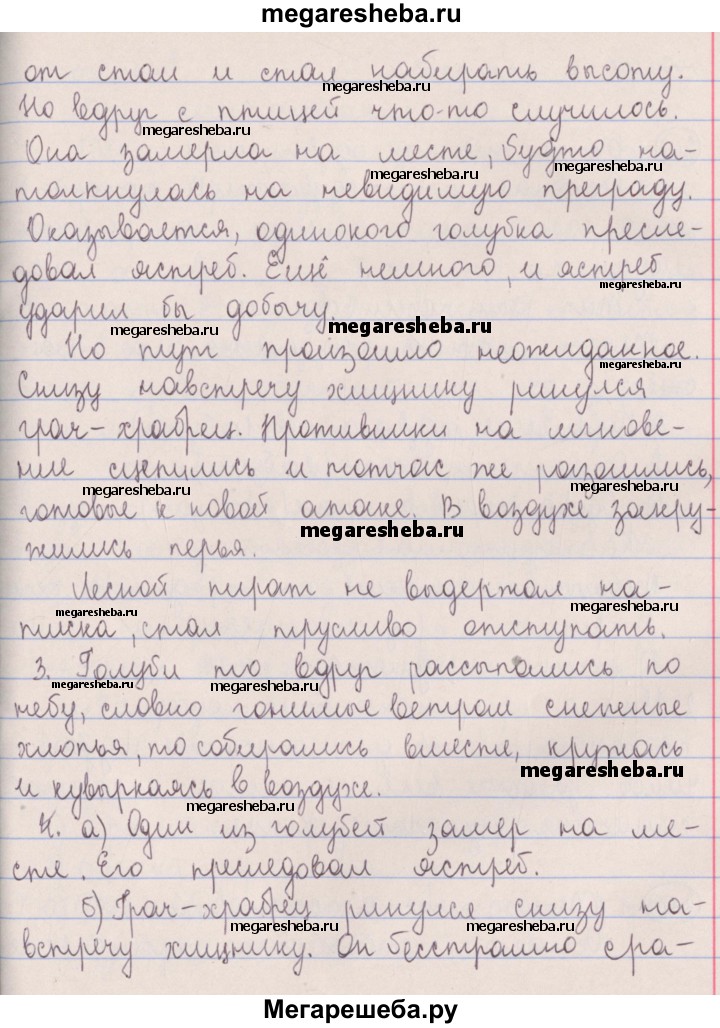 megaresheba.ru
от стаи и стал набирать высоту.
megaresheba.ru
Но вдруг с птицей что-то случилось.
megaresheba.ru
Она замерла на месте, будто на-
megaresheba.ru
толкнулась на невидимую преграду.
Оказывается, одинокого голубка пресле-
довал ястреб. Ещё немного, и ястреб
megaresheba.ru
ударил бы добычу.
megaresheba.ru
megaresheba.ru
Но тут произошло неожиданное.
megaresheba.ru
Снизу навстречу хищнику ринулся
грач-храбрец. Противники на мгнове-
ние сцепились и тотчас же разошлись,
megaresheba.ru
megaresheba.ru
готовые к новой атаке. В воздухе закру-
megaresheba.ru
жились перья.
Лесной пират не выдержал на-
megaresheba.ru
megaresheba.ru
тиска, стал трусливо отступать.
3. Голуби то вдруг рассыпались по
megaresheba.ru
megaresheba.ru
небу, словно гонимые ветром снежные
хлопья, то собирались вместе, кружась
megaresheba.ru
и кувыркаясь в воздухе.
megaresheba.ru
4. а) Один из голубей замер на ме-
сте. Его преследовал ястреб.
б) Грач-храбрец ринулся снизу на-
megaresheba.ru
megaresheba.ru
встречу хищнику. Он бесстрашно сра-
Мегарешеба.ру